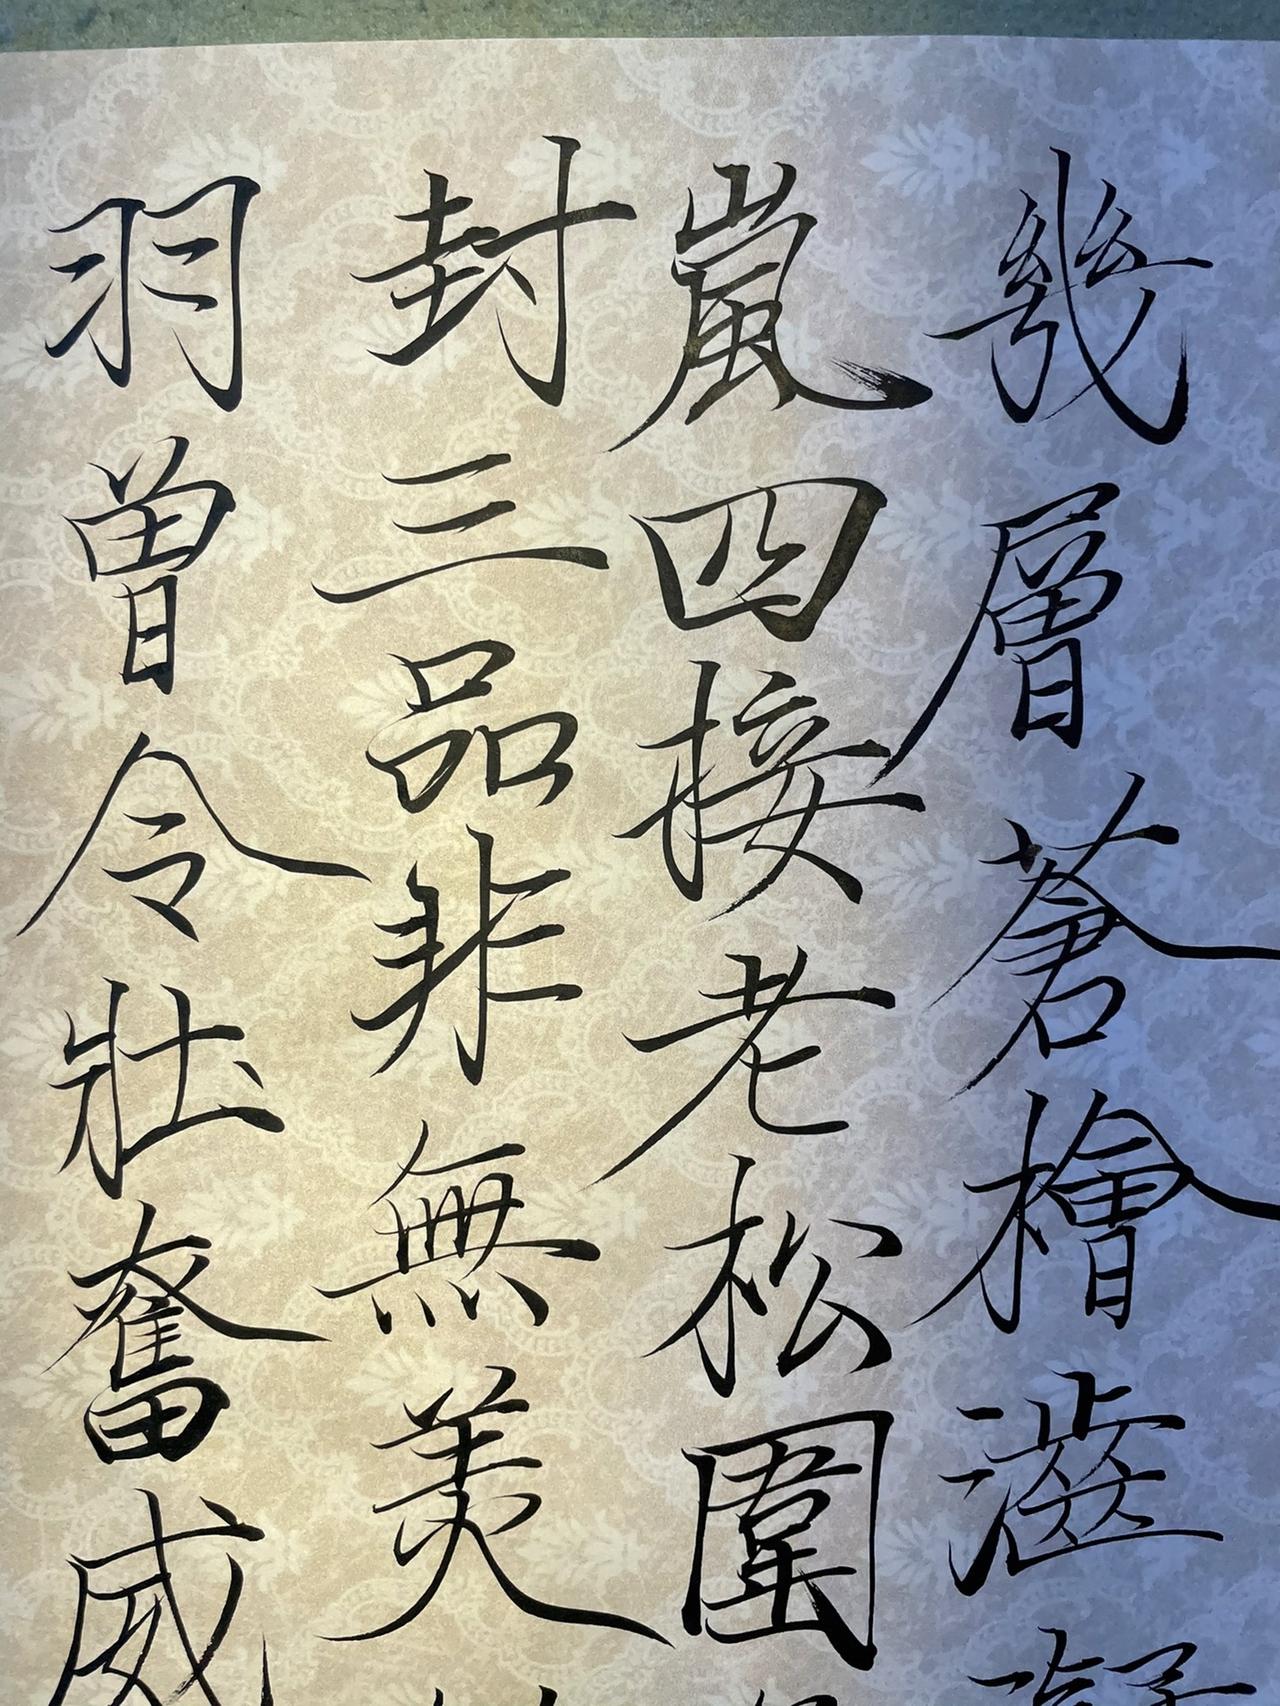 幾層蒼檜澁凝
嵐四接老松圍
封三品非無美
羽曽令壯奮威